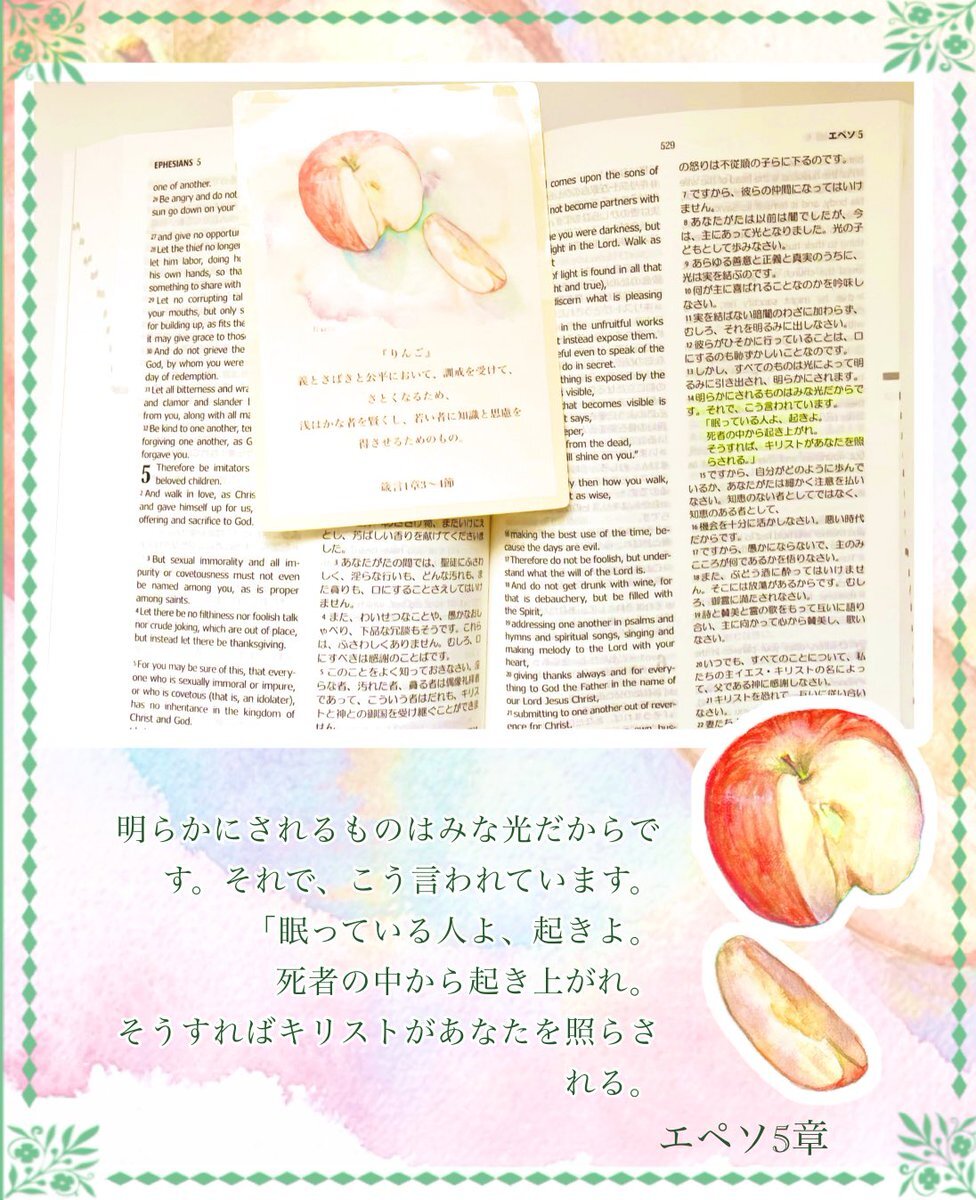 EPHESIANS 5
one of another.
26 Be angry and do not
sun go down on your
27 and give no opportu
28 Let the thief no longer
let him labor, doing ho
his own hands, so tha
something to share with
29 Let no corrupting tal
your mouths, but only s
for building up, as fits the
it may give grace to those
30 And do not grieve the
God, by whom you were
day of redemption.
31 Let all bitterness and wra
and clamor and slander
from you, along with all ma
32 Be kind to one another, ten
forgiving one another, as G
forgave you.
5 Therefore be imitators
beloved children.
2 And walk in love, as Chris
and gave himself up for us,
offering and sacrifice to God.
3 But sexual immorality and all im-
purity or covetousness must not even
be named among you, as is proper
among saints.
4 Let there be no filthiness nor foolish talk
nor crude joking, which are out of place,
but instead let there be thanksgiving.
5 For you may be sure of this, that every-
one who is sexually immoral or impure,
or who is covetous (that is, an idolater),
has no inheritance in the kingdom of
Christ and God.
『りんご』
義とさばきと公平において、訓戒を受けて、
さとくなるため、
浅はかな者を賢くし、若い者に知識と思慮を
得させるためのもの。
箴言1章3〜4節
とし、芳ばしい香りを献げてくださいま
した。
3 あなたがたの間では、聖徒にふさわ
しく、淫らな行いも、どんな汚れも、ま
た貪りも、口にすることさえしてはいけ
ません。
4 また、わいせつなことや、愚かなおし
ゃべり、下品な冗談もそうです。これら
は、ふさわしくありません。むしろ、口
にすべきは感謝のことばです。
5 このことをよく知っておきなさい。淫
らな者、汚れた者、貪る者は偶像礼拝者
であって、こういう者はだれも、キリス
トと神との御国を受け継ぐことができま
せん。
529
comes upon the sons of
not become partners with
e you were darkness, but
ight in the Lord. Walk as
of light is found in all that
ht and true),
iscern what is pleasing
in the unfruitful works
t instead expose them.
eful even to speak of the
do in secret.
thing is exposed by the
visible,
that becomes visible is
says,
eper,
from the dead,
ll shine on you.”
ly then how you walk,
t as wise,
16 making the best use of the time, be-
cause the days are evil.
17 Therefore do not be foolish, but under-
stand what the will of the Lord is.
18 And do not get drunk with wine, for
that is debauchery, but be filled with
the Spirit,
19 addressing one another in psalms and
hymns and spiritual songs, singing and
making melody to the Lord with your
heart,
20 giving thanks always and for every-
thing to God the Father in the name of
our Lord Jesus Christ,
21 submitting to one another out of rever-
ence for Christ.
エペソ 5
の怒りは不従順の子らに下るのです。
7 ですから、彼らの仲間になってはいけ
ません。
8 あなたがたは以前は闇でしたが、今
は、主にあって光となりました。光の子
どもとして歩みなさい。
9 あらゆる善意と正義と真実のうちに、
光は実を結ぶのです。
10 何が主に喜ばれることなのかを吟味し
なさい。
11 実を結ばない暗闇のわざに加わらず、
むしろ、それを明るみに出しなさい。
12 彼らがひそかに行っていることは、口
にするのも恥ずかしいことなのです。
13 しかし、すべてのものは光によって明
るみに引き出され、明らかにされます。
14 明らかにされるものはみな光だからで
す。それで、こう言われています。
「眠っている人よ、起きよ。
死者の中から起き上がれ。
そうすれば、キリストがあなたを照
らされる。」
15 ですから、自分がどのように歩んで
いるか、あなたがたは細かく注意を払い
なさい。知恵のない者としてではなく、
知恵のある者として、
16 機会を十分に活かしなさい。悪い時代
だからです。
17 ですから、愚かにならないで、主のみ
こころが何であるかを悟りなさい。
18 また、ぶどう酒に酔ってはいけませ
ん。そこには放蕩があるからです。むし
ろ、御霊に満たされなさい。
19 詩と賛美と霊の歌をもって互いに語り
合い、主に向かって心から賛美し、歌い
なさい。
20 いつでも、すべてのことについて、私
たちの主イエス・キリストの名によっ
て、父である神に感謝しなさい。
21 キリストを恐れて、互いに従い合い
なさい。
22 妻たち
明らかにされるものはみな光だからで
す。それで、こう言われています。
「眠っている人よ、起きよ。
死者の中から起き上がれ。
そうすればキリストがあなたを照らさ
れる。
エペソ5章